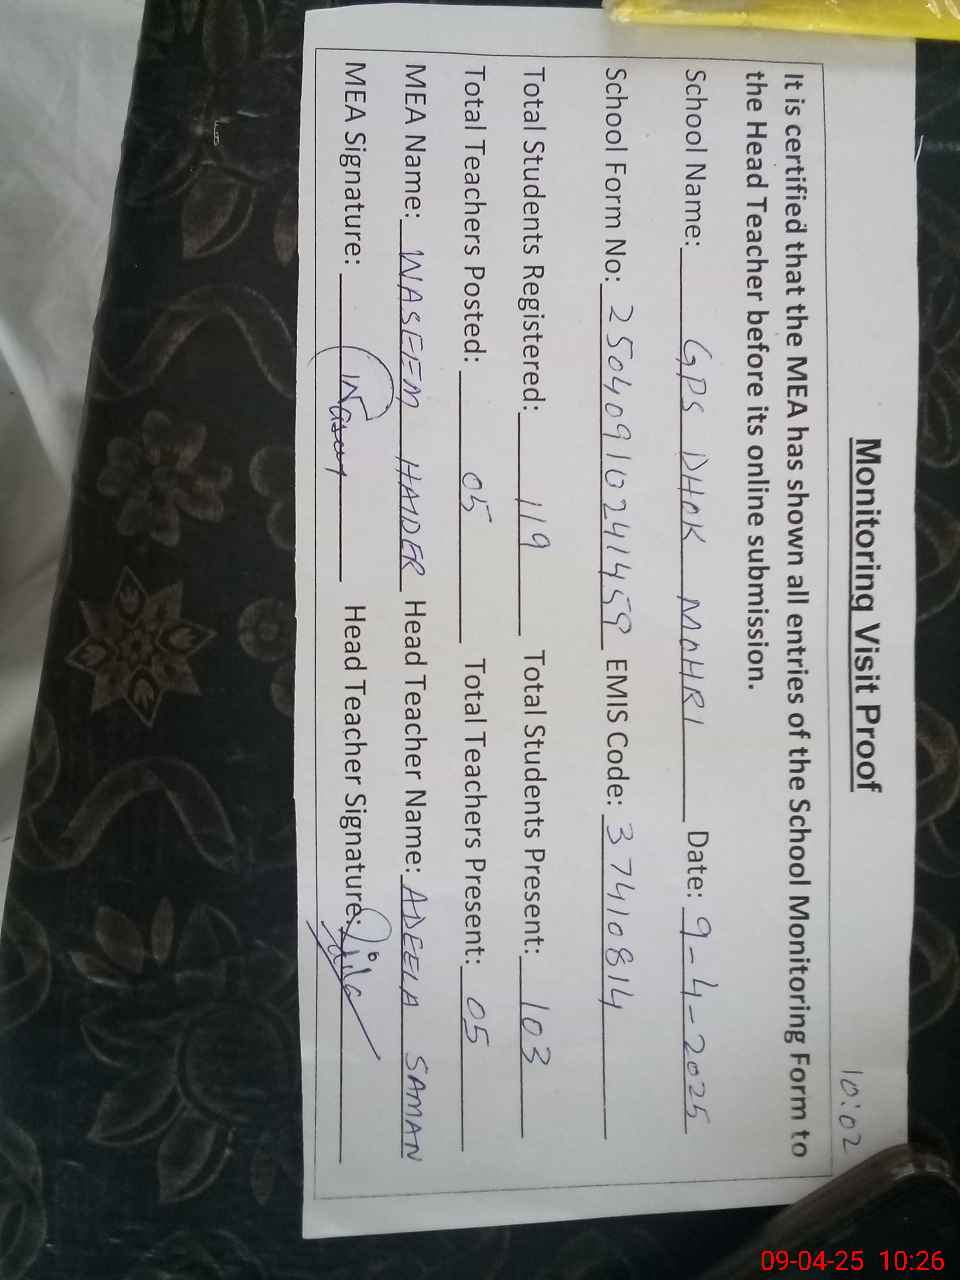 10:02
Monitoring Visit Proof
It is certified that the MEA has shown all entries of the School Monitoring Form to
the Head Teacher before its online submission.
School Name: GPS DHOK MOHRI Date: 9-4-2025
School Form No: 25040910241459 EMIS Code: 37410814
Total Students Registered: 119 Total Students Present: 103
Total Teachers Posted: 05 Total Teachers Present: 05
MEA Name: WASEEM HAIDER Head Teacher Name: ADEELA SAMAN
MEA Signature: Head Teacher Signature:
09-04-25 10:26